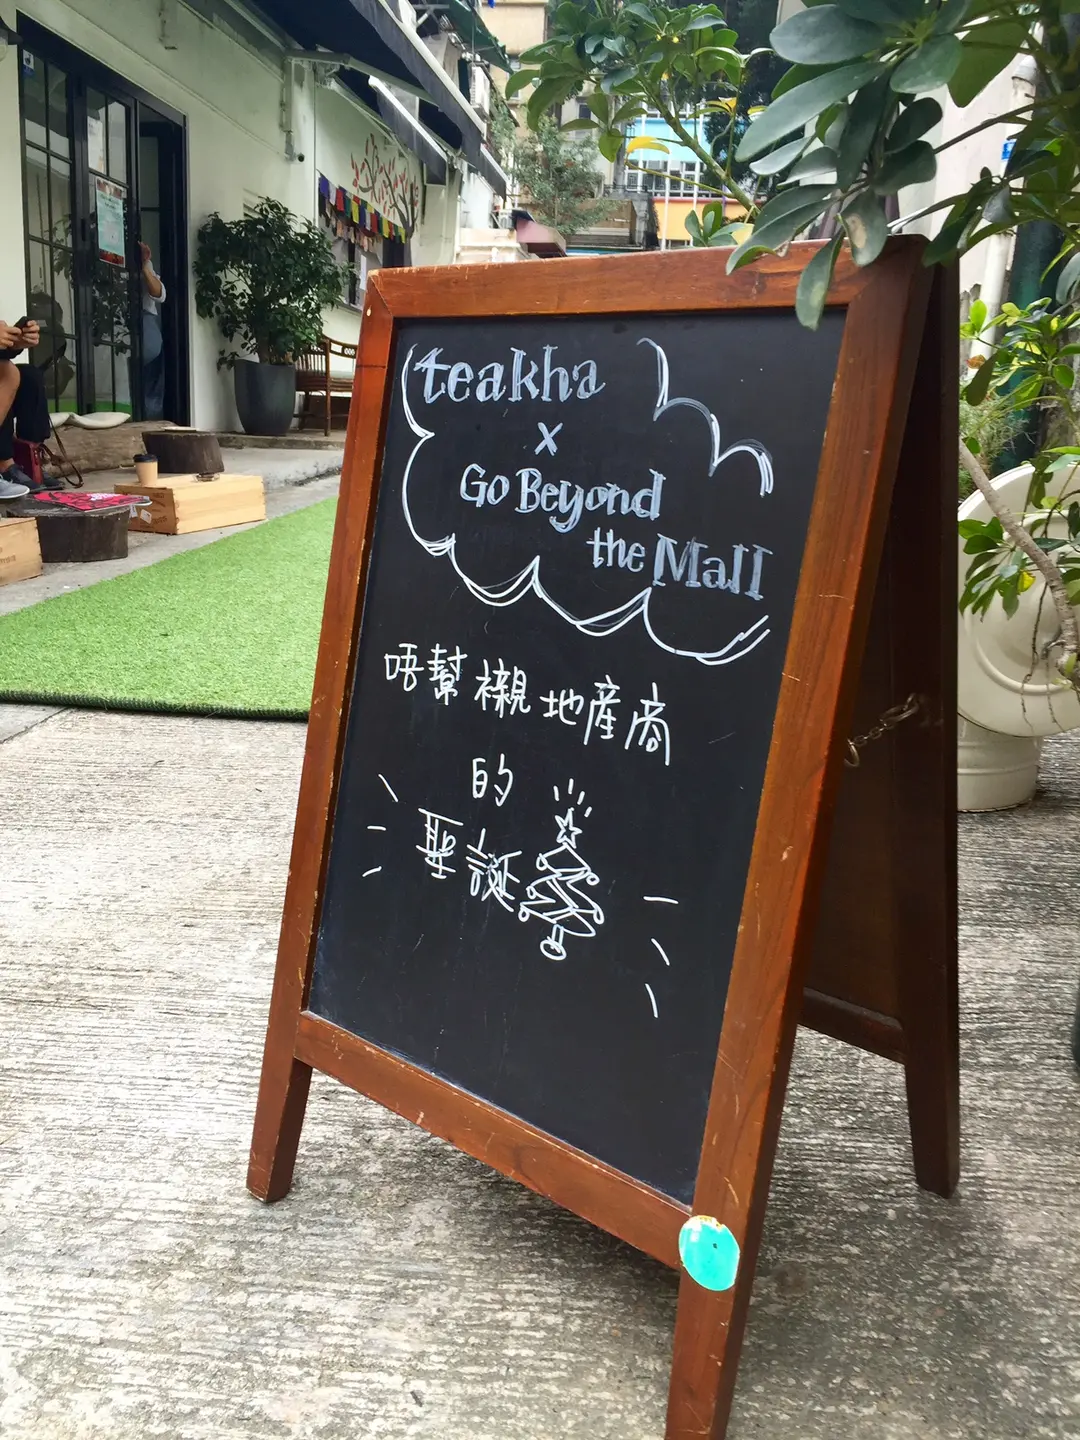 teakha
x
Go Beyond
the Mall
唔幫襯地產商
的
聖誕